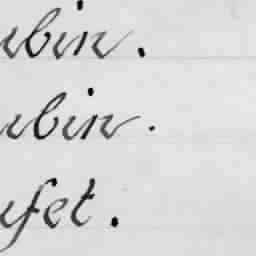 ubin.
ubin.
uset.